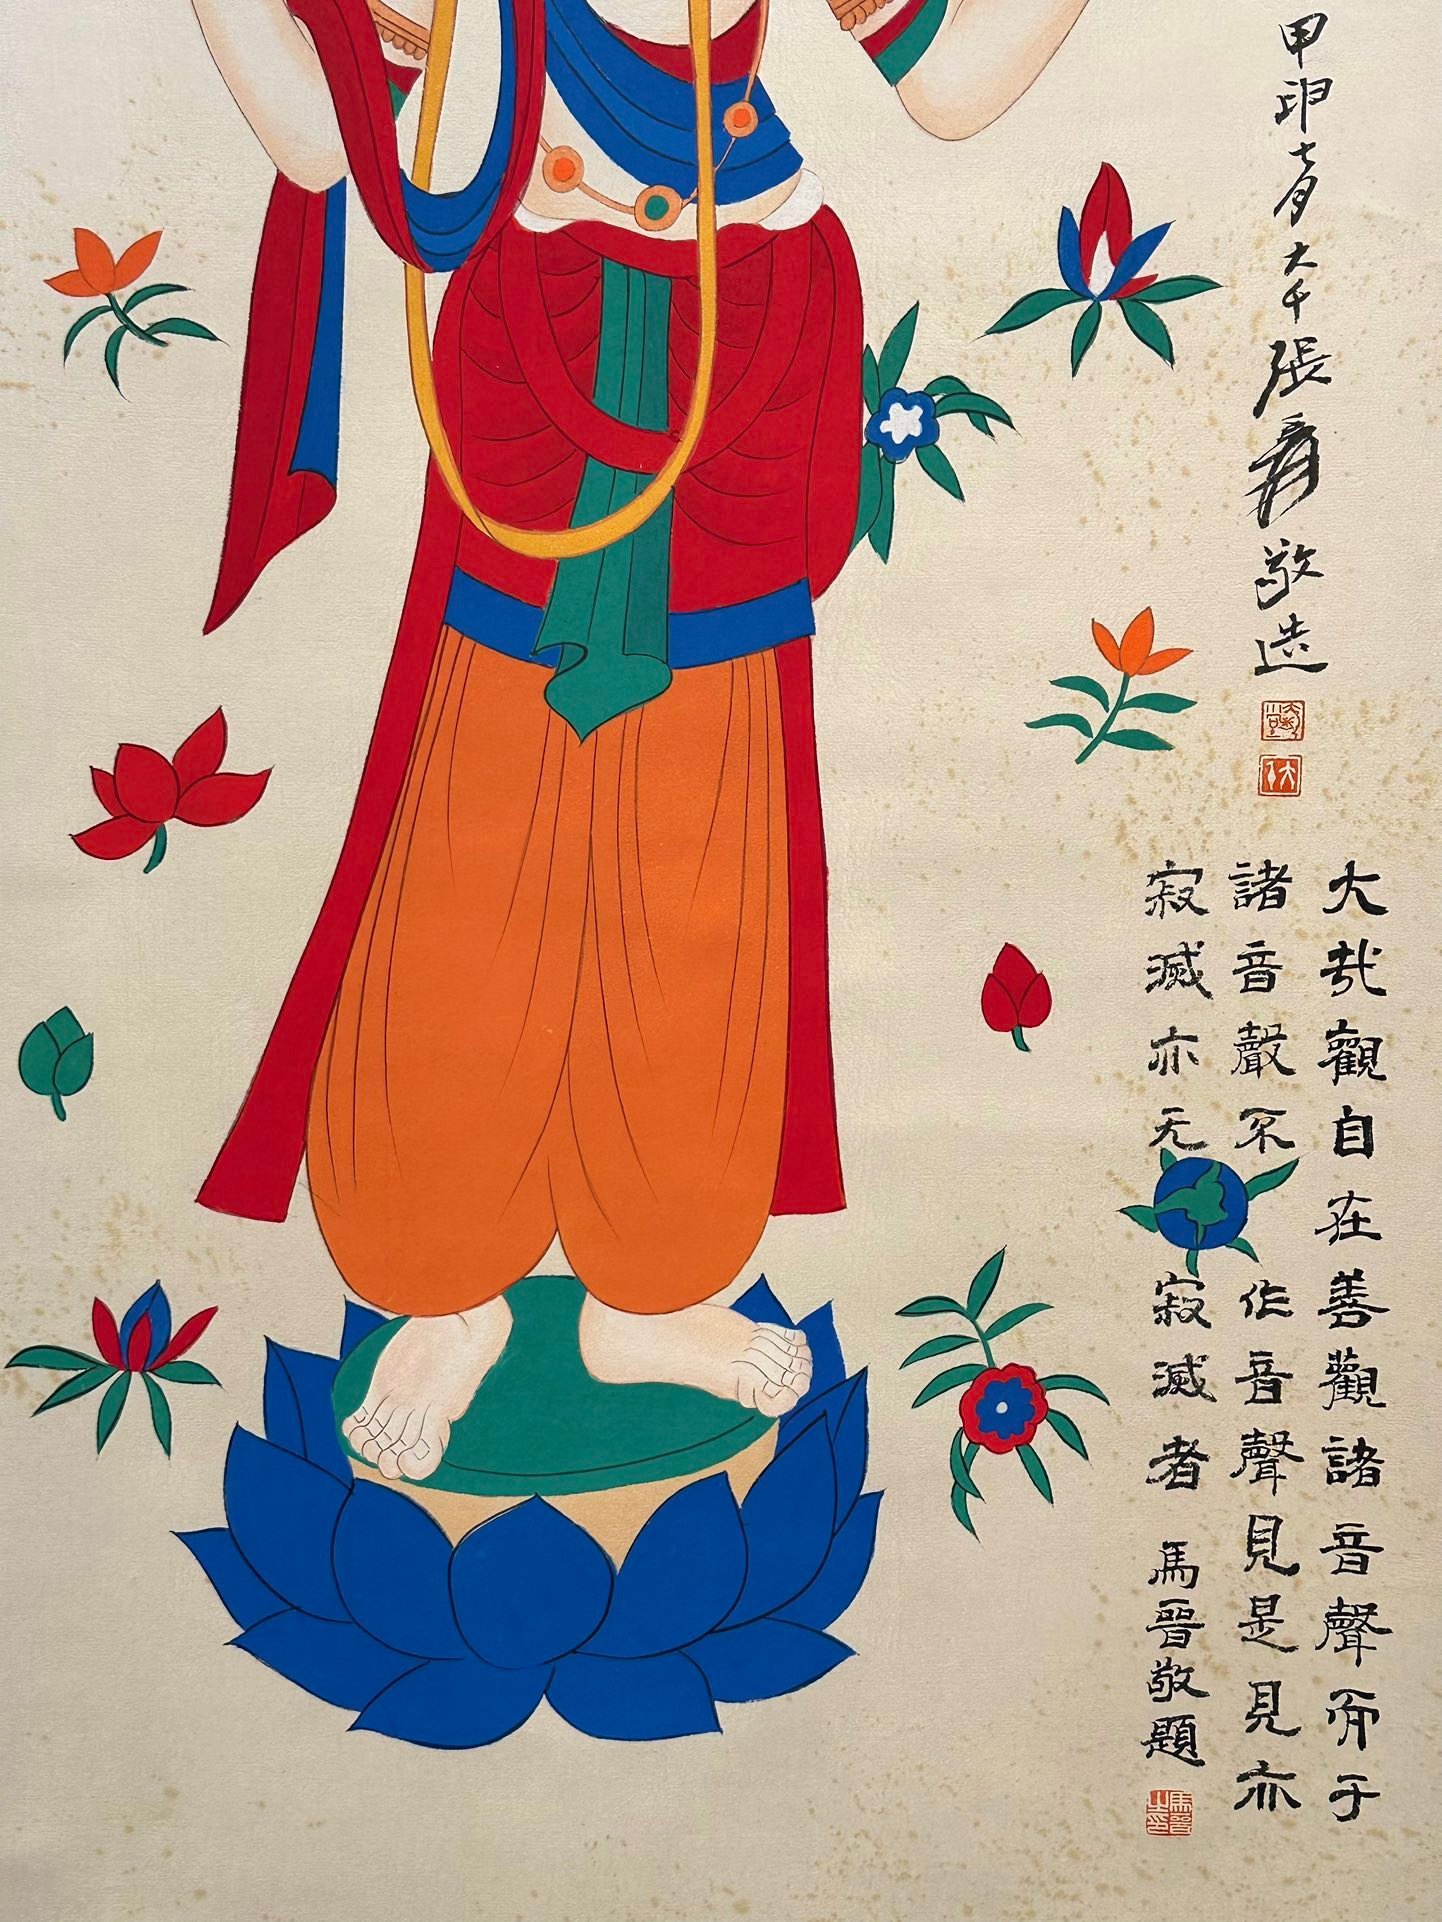 甲申七月大千張爰敬造
大哉觀自在善觀諸音聲而于
諸音聲不作音聲見是見亦
寂滅亦无寂滅者
馬晉敬題
馬晉之印